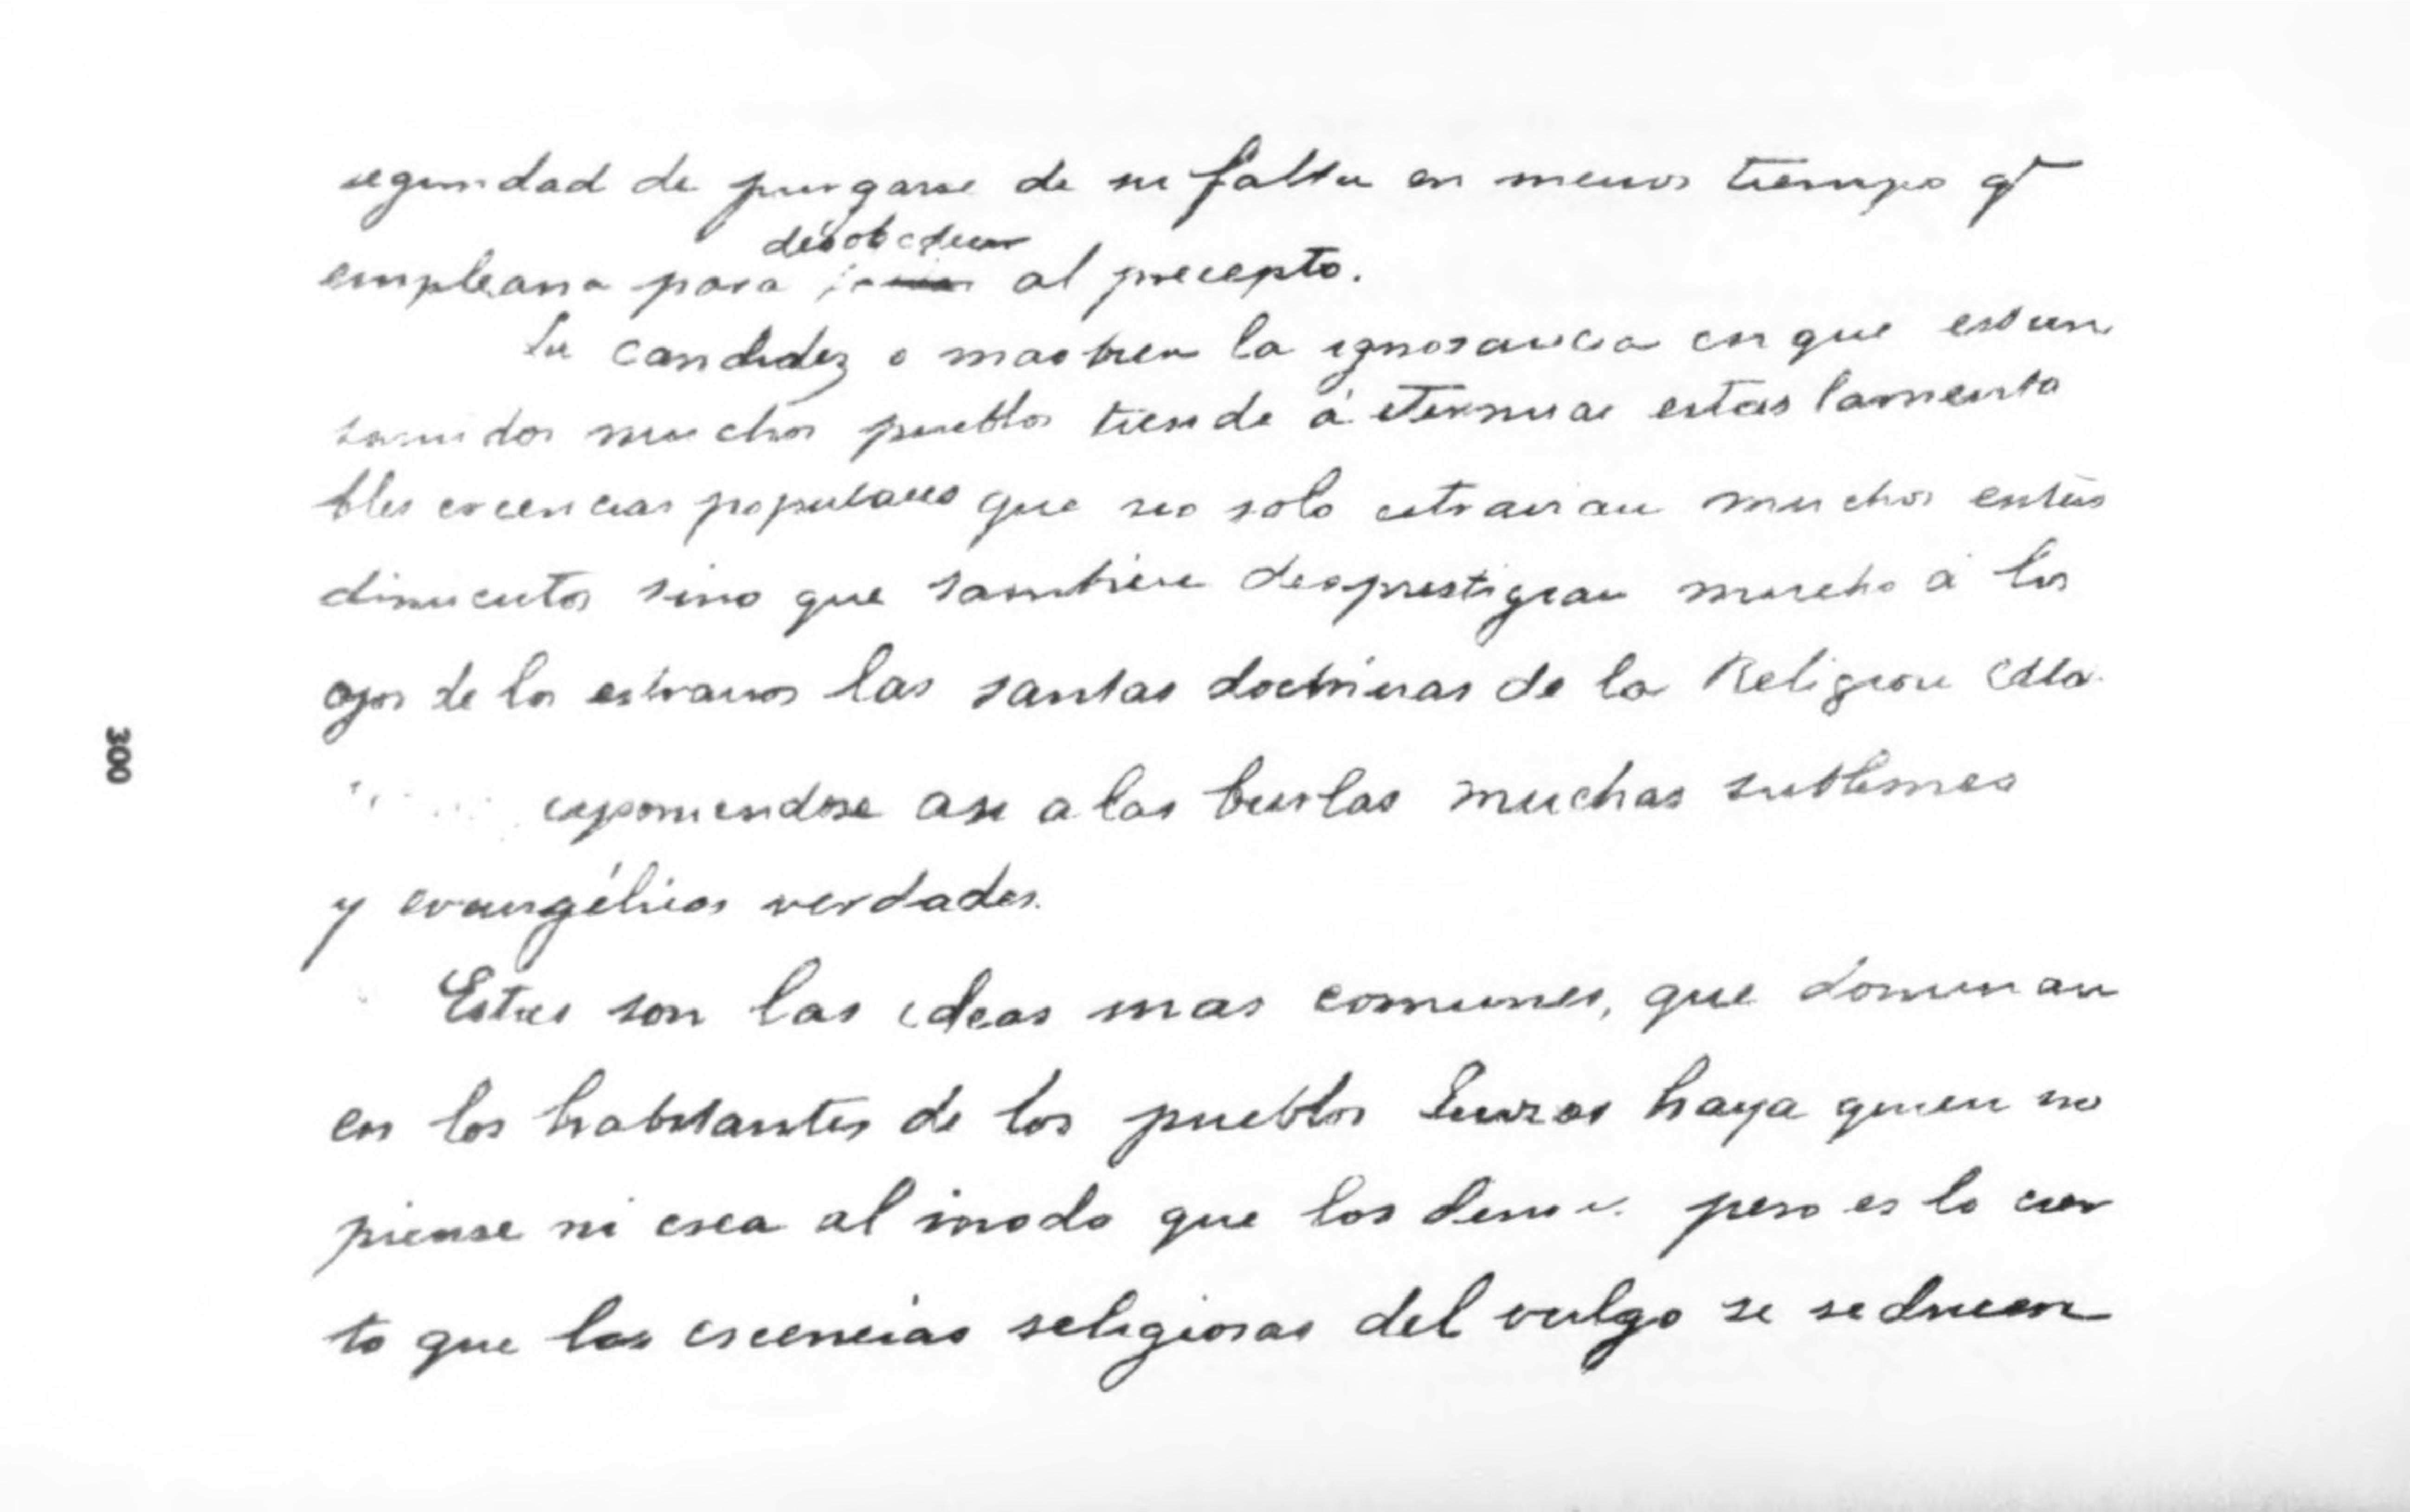 seguridad de purgarse de su falta en menos tiempo qe
desobedecer
emplearia para al precepto.
La candidez o mas bien la ignorancia en que estan
sumidos muchos pueblos tiende á eternizar estas lamenta
bles creencias populares que no solo extravian muchos enten
dimientos sino que tambien desprestigian mucho á los
ojos de los estraños las santas doctrinas de la Religion Cató
esponiendose asi a las burlas muchas sublimes
y evangélicas verdades.
Estas son las ideas mas comunes, que dominan
en los habitantes de los pueblos Quizas haya quien no
piense ni crea al modo que los demas pero es lo cier
to que las creencias religiosas del vulgo se reducen
300